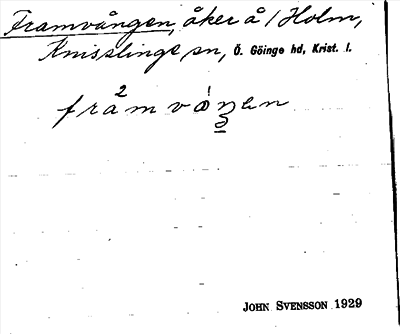 Framvången, åker å 1 Holm,
Knisslinge sn, Ö. Göinge hd, Krist. l.
JOHN SVENSSON 1929